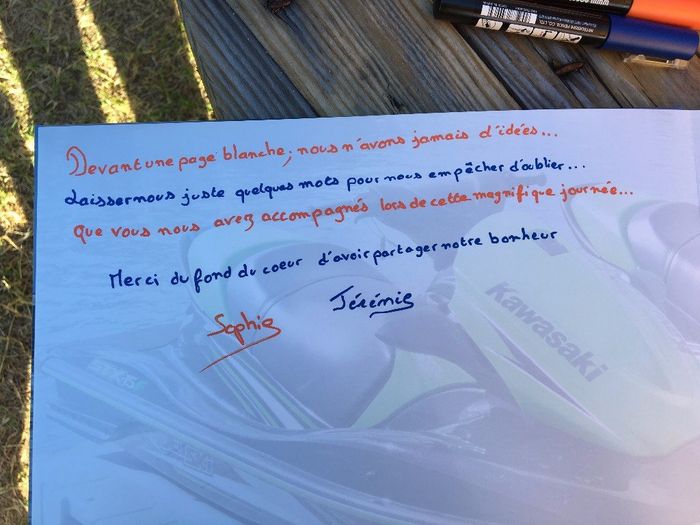 Devant une page blanche, nous n'avons jamais d'idées...
Laissernous juste quelques mots pour nous empêcher d'oublier...
que vous nous avez accompagnés lors de cette magnifique journée...
Merci du fond du coeur d'avoir partager notre bonheur
Sophie
Jérémie
Kawasaki